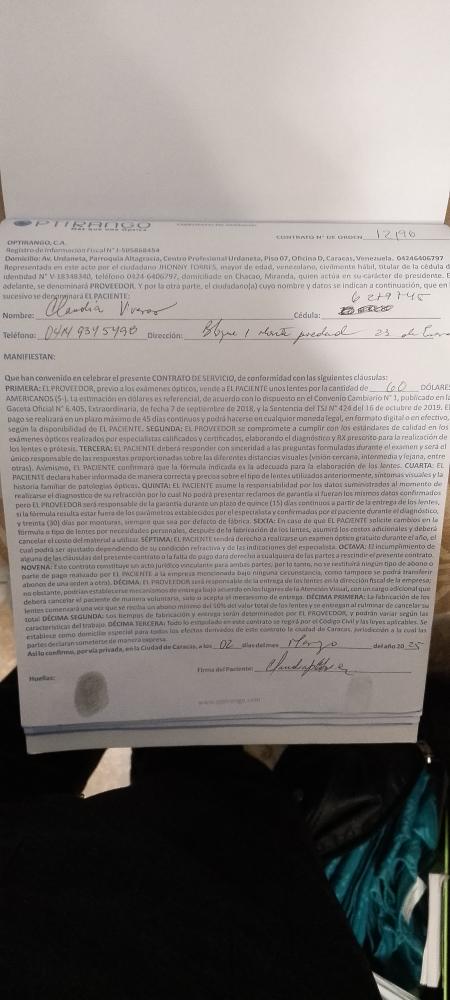 OPTIRANGO
CONTRATO N° DE ORDEN 12190
OPTIRANGO, C.A.
Registro de Información Fiscal N° J-505868454
Domicilio: Av. Urdaneta, Parroquia Altagracia, Centro Profesional Urdaneta, Piso 07, Oficina D, Caracas, Venezuela. 04246406797
Representada en este acto por el ciudadano JHONNY TORRES, mayor de edad, venezolano, civilmente hábil, titular de la cédula d
identidad N° V-18348340, teléfono 0424 6406797, domiciliado en Chacao, Miranda, quien actúa en su carácter de presidente. E
adelante, se denominará PROVEEDOR. Y por la otra parte, el ciudadano(a) cuyo nombre y datos se indican a continuación, que en l
sucesivo se denominará EL PACIENTE:
6219745
Nombre: Claudia Cédula:
Teléfono: 0414 9345490 Dirección: Bloque 1 23 de
MANIFIESTAN:
Que han convenido en celebrar el presente CONTRATO DE SERVICIO, de conformidad con las siguientes cláusulas:
PRIMERA: EL PROVEEDOR, previo a los exámenes ópticos, vende a EL PACIENTE unos lentes por la cantidad de 60 DÓLARES
AMERICANOS ($-). La estimación en dólares es referencial, de acuerdo con lo dispuesto en el Convenio Cambiario N° 1, publicado en la
Gaceta Oficial N° 6.405, Extraordinaria, de fecha 7 de septiembre de 2018, y la Sentencia del TSJ N° 424 del 16 de octubre de 2019. El
pago se realizará en un plazo máximo de 45 días continuos y podrá hacerse en cualquier moneda legal, en formato digital o en efectivo,
según la disponibilidad de EL PACIENTE. SEGUNDA: EL PROVEEDOR se compromete a cumplir con los estándares de calidad en los
exámenes ópticos realizados por especialistas calificados y certificados, elaborando el diagnóstico y RX prescrito para la realización de
los lentes o prótesis. TERCERA: EL PACIENTE deberá responder con sinceridad a las preguntas formuladas durante el examen y será el
único responsable de las respuestas proporcionadas sobre las diferentes distancias visuales (visión cercana, intermedia y lejana, entre
otras). Asimismo, EL PACIENTE confirmará que la fórmula indicada es la adecuada para la elaboración de los lentes. CUARTA: EL
PACIENTE declara haber informado de manera correcta y precisa sobre el tipo de lentes utilizados anteriormente, síntomas visuales y la
historia familiar de patologías ópticas. QUINTA: EL PACIENTE asume la responsabilidad por los datos suministrados al momento de
realizarse el diagnostico de su refracción por lo cual No podrá presentar reclamos de garantía si fueron los mismos datos confirmados
pero EL PROVEEDOR será responsable de la garantía durante un plazo de quince (15) días continuos a partir de la entrega de los lentes,
si la fórmula resulta estar fuera de los parámetros establecidos por el especialista y confirmados por el paciente durante el diagnóstico,
y treinta (30) días por monturas, siempre que sea por defecto de fábrica. SEXTA: En caso de que EL PACIENTE solicite cambios en la
fórmula o tipo de lentes por necesidades personales, después de la fabricación de los lentes, asumirá los costos adicionales y deberá
cancelar el costo del material a utilizar. SÉPTIMA: EL PACIENTE tendrá derecho a realizarse un examen óptico gratuito durante el año, el
cual podrá ser ajustado dependiendo de su condición refractiva y de las indicaciones del especialista. OCTAVA: El incumplimiento de
alguna de las cláusulas del presente contrato o la falta de pago dará derecho a cualquiera de las partes a rescindir el presente contrato.
NOVENA: Este contrato constituye un acto jurídico vinculante para ambas partes; por lo tanto, no se restituirá ningún tipo de abono o
parte de pago realizado por EL PACIENTE a la empresa mencionada bajo ninguna circunstancia, como tampoco se podrá transferir
abonos de una orden a otra). DÉCIMA: EL PROVEEDOR será responsable de la entrega de los lentes en la dirección fiscal de la empresa;
no obstante, podrían establecerse mecanismos de entrega bajo acuerdo en los lugares de la Atención Visual, con un cargo adicional que
deberá cancelar el paciente de manera voluntaria, solo si acepta el mecanismo de entrega. DÉCIMA PRIMERA: La fabricación de los
lentes comenzará una vez que se reciba un abono mínimo del 50% del valor total de los lentes y se entregarán al culminar de cancelar su
total. DÉCIMA SEGUNDA: Los tiempos de fabricación y entrega serán determinados por EL PROVEEDOR, y podrán variar según las
características del trabajo. DÉCIMA TERCERA: Todo lo estipulado en este contrato se regirá por el Código Civil y las leyes aplicables. Se
establece como domicilio especial para todos los efectos derivados de este contrato la ciudad de Caracas, jurisdicción a la cual las
partes declaran someterse de manera expresa.
Así lo confirmo, por vía privada, en la Ciudad de Caracas, a los 02 días del mes Marzo del año 20 25
Firma del Paciente:
Huellas:
www.optirango.com